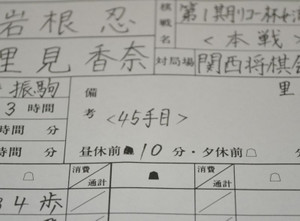 岩根 忍
棋戦名
第1期リコー杯女流
<本戦>
里見香奈
対局場
関西将棋会
振駒
3時間
備考
<45手目>
里
時間 分
時間 分
昼休前☗10分・夕休前☖
消費
通計
消費
通計
34歩